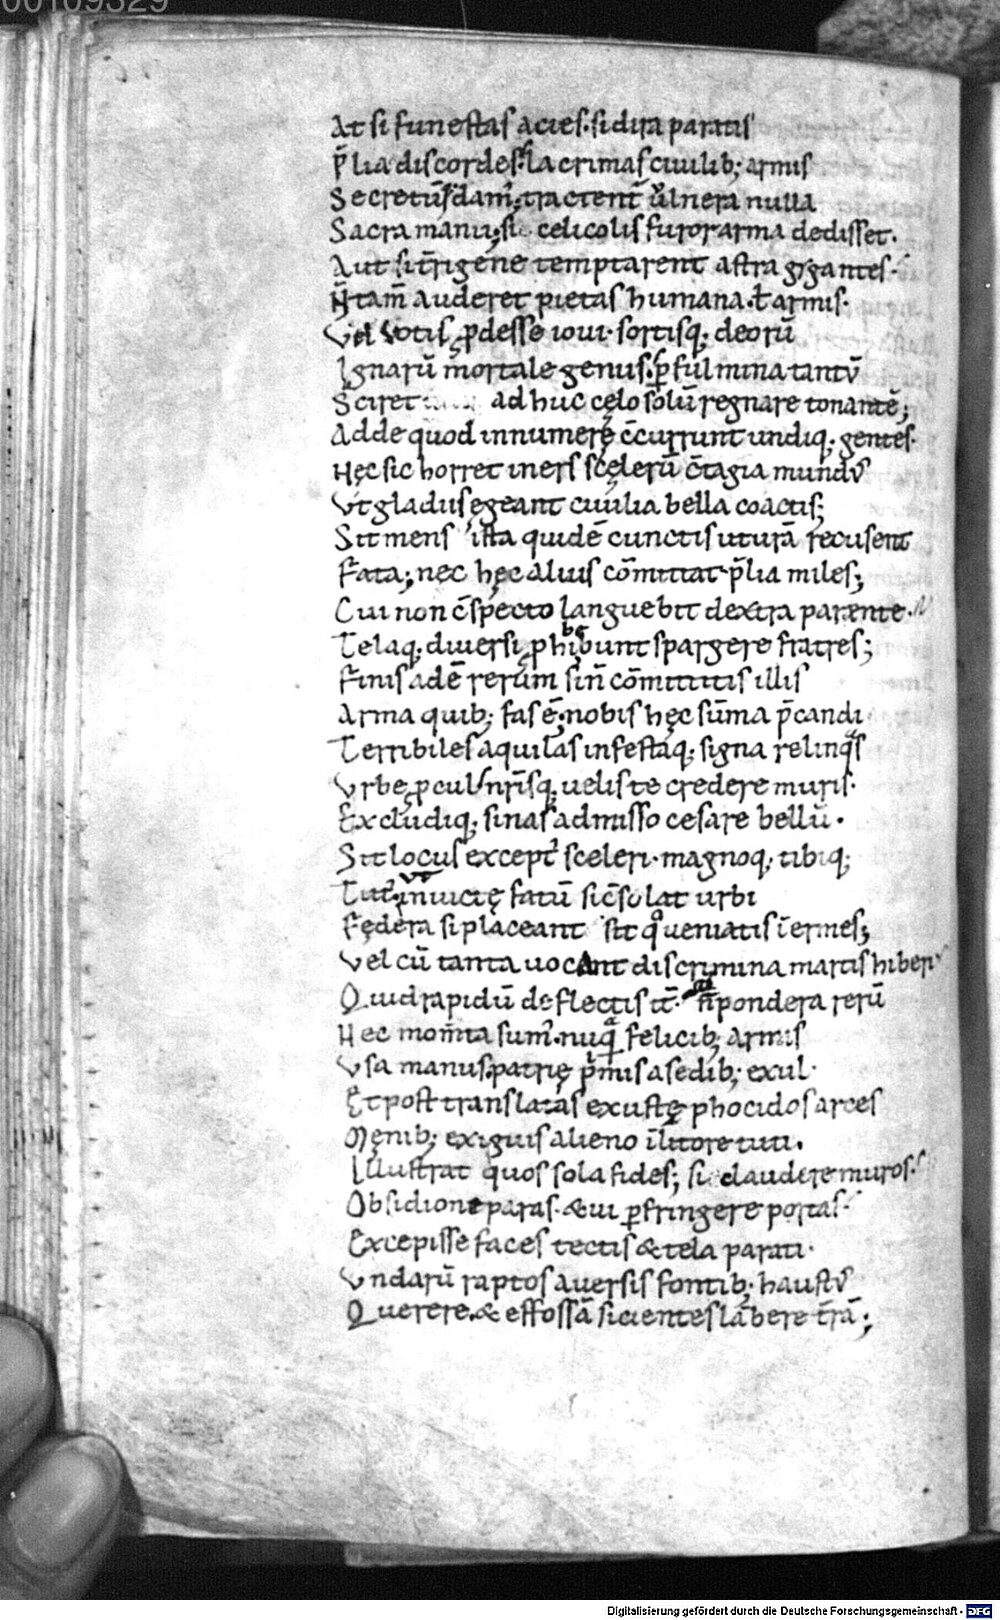 00109329
At si funestas acies. si dira paratis
p̄lia discordes. lacrimas ciuilib; armis
Secretū dam̄; tractent uulnera nulla
Sacra manu; si celicolis furor arma dedisset.
Aut si t̄rigene temptarent astra gigantes.
N̄ tam̄ auderet pietas humana. ł armis.
Vel uotis ꝓdesse ioui. sortisq; deorū
Ignarū mortale genus. ꝑ fulmina tantū
Sciret ad huc cęlo solū regnare tonantē;
Adde quod innumerę c̄currunt undiq; gentes.
Hęc sic horret iners scęlerū c̄tagia mundus
Vt gladiis egeant ciuilia bella coactis;
Sit mens ista quidē cunctis ut urā recusent
Fata; nec hęc alius cōmittat p̄lia miles;
Cui non c̄specto languebit dextra parente.
Telaq; diuersi ꝓhibebunt spargere fratres;
Finis adē rerum sin̄ cōmittitis illis
Arma quib; fas ē; nobis hęc sūma p̄candi
Terribiles aquilas infestaq; signa relinquas
Vrbe ꝓcul nr̄isq; uelis te credere muris.
Excludiq; sinas admisso cesare bellū.
Sit locus except' sceleri. magnoq; tibiq;
Tut'. ut inuictę fatū si c̄solat urbi
Fędera si placeant sit quo ueniatis ī ermes;
Vel cū tanta uocAnt discrimina martis hiberi
Quid rapidū deflectis it̄. n̄ pondera rerū
Hec mom̄ta sum'. nuquā felicib; armis
Vsa manus. patrię p̄mis a sedib; exul.
Et post translatas exustę phocidos arces
Męnib; exiguis alieno ī litore tuti.
Illustrat quos sola fides; si claudere muros.
Obsidione paras. & ui ꝑfringere portas.
Excepisse faces tectis & tela parati.
Vndarū raptos auersis fontib; haustus
Querere. & effossā sicientes lābere t̄rā;
Digitalisierung gefördert durch die Deutsche Forschungsgemeinschaft - DFG